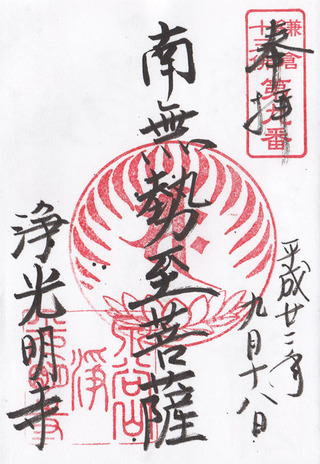 奉拝
鎌倉
十三佛
第九番
平成廿二年
九月十八日
南無勢至菩薩
泉谷山
浄
浄光明寺